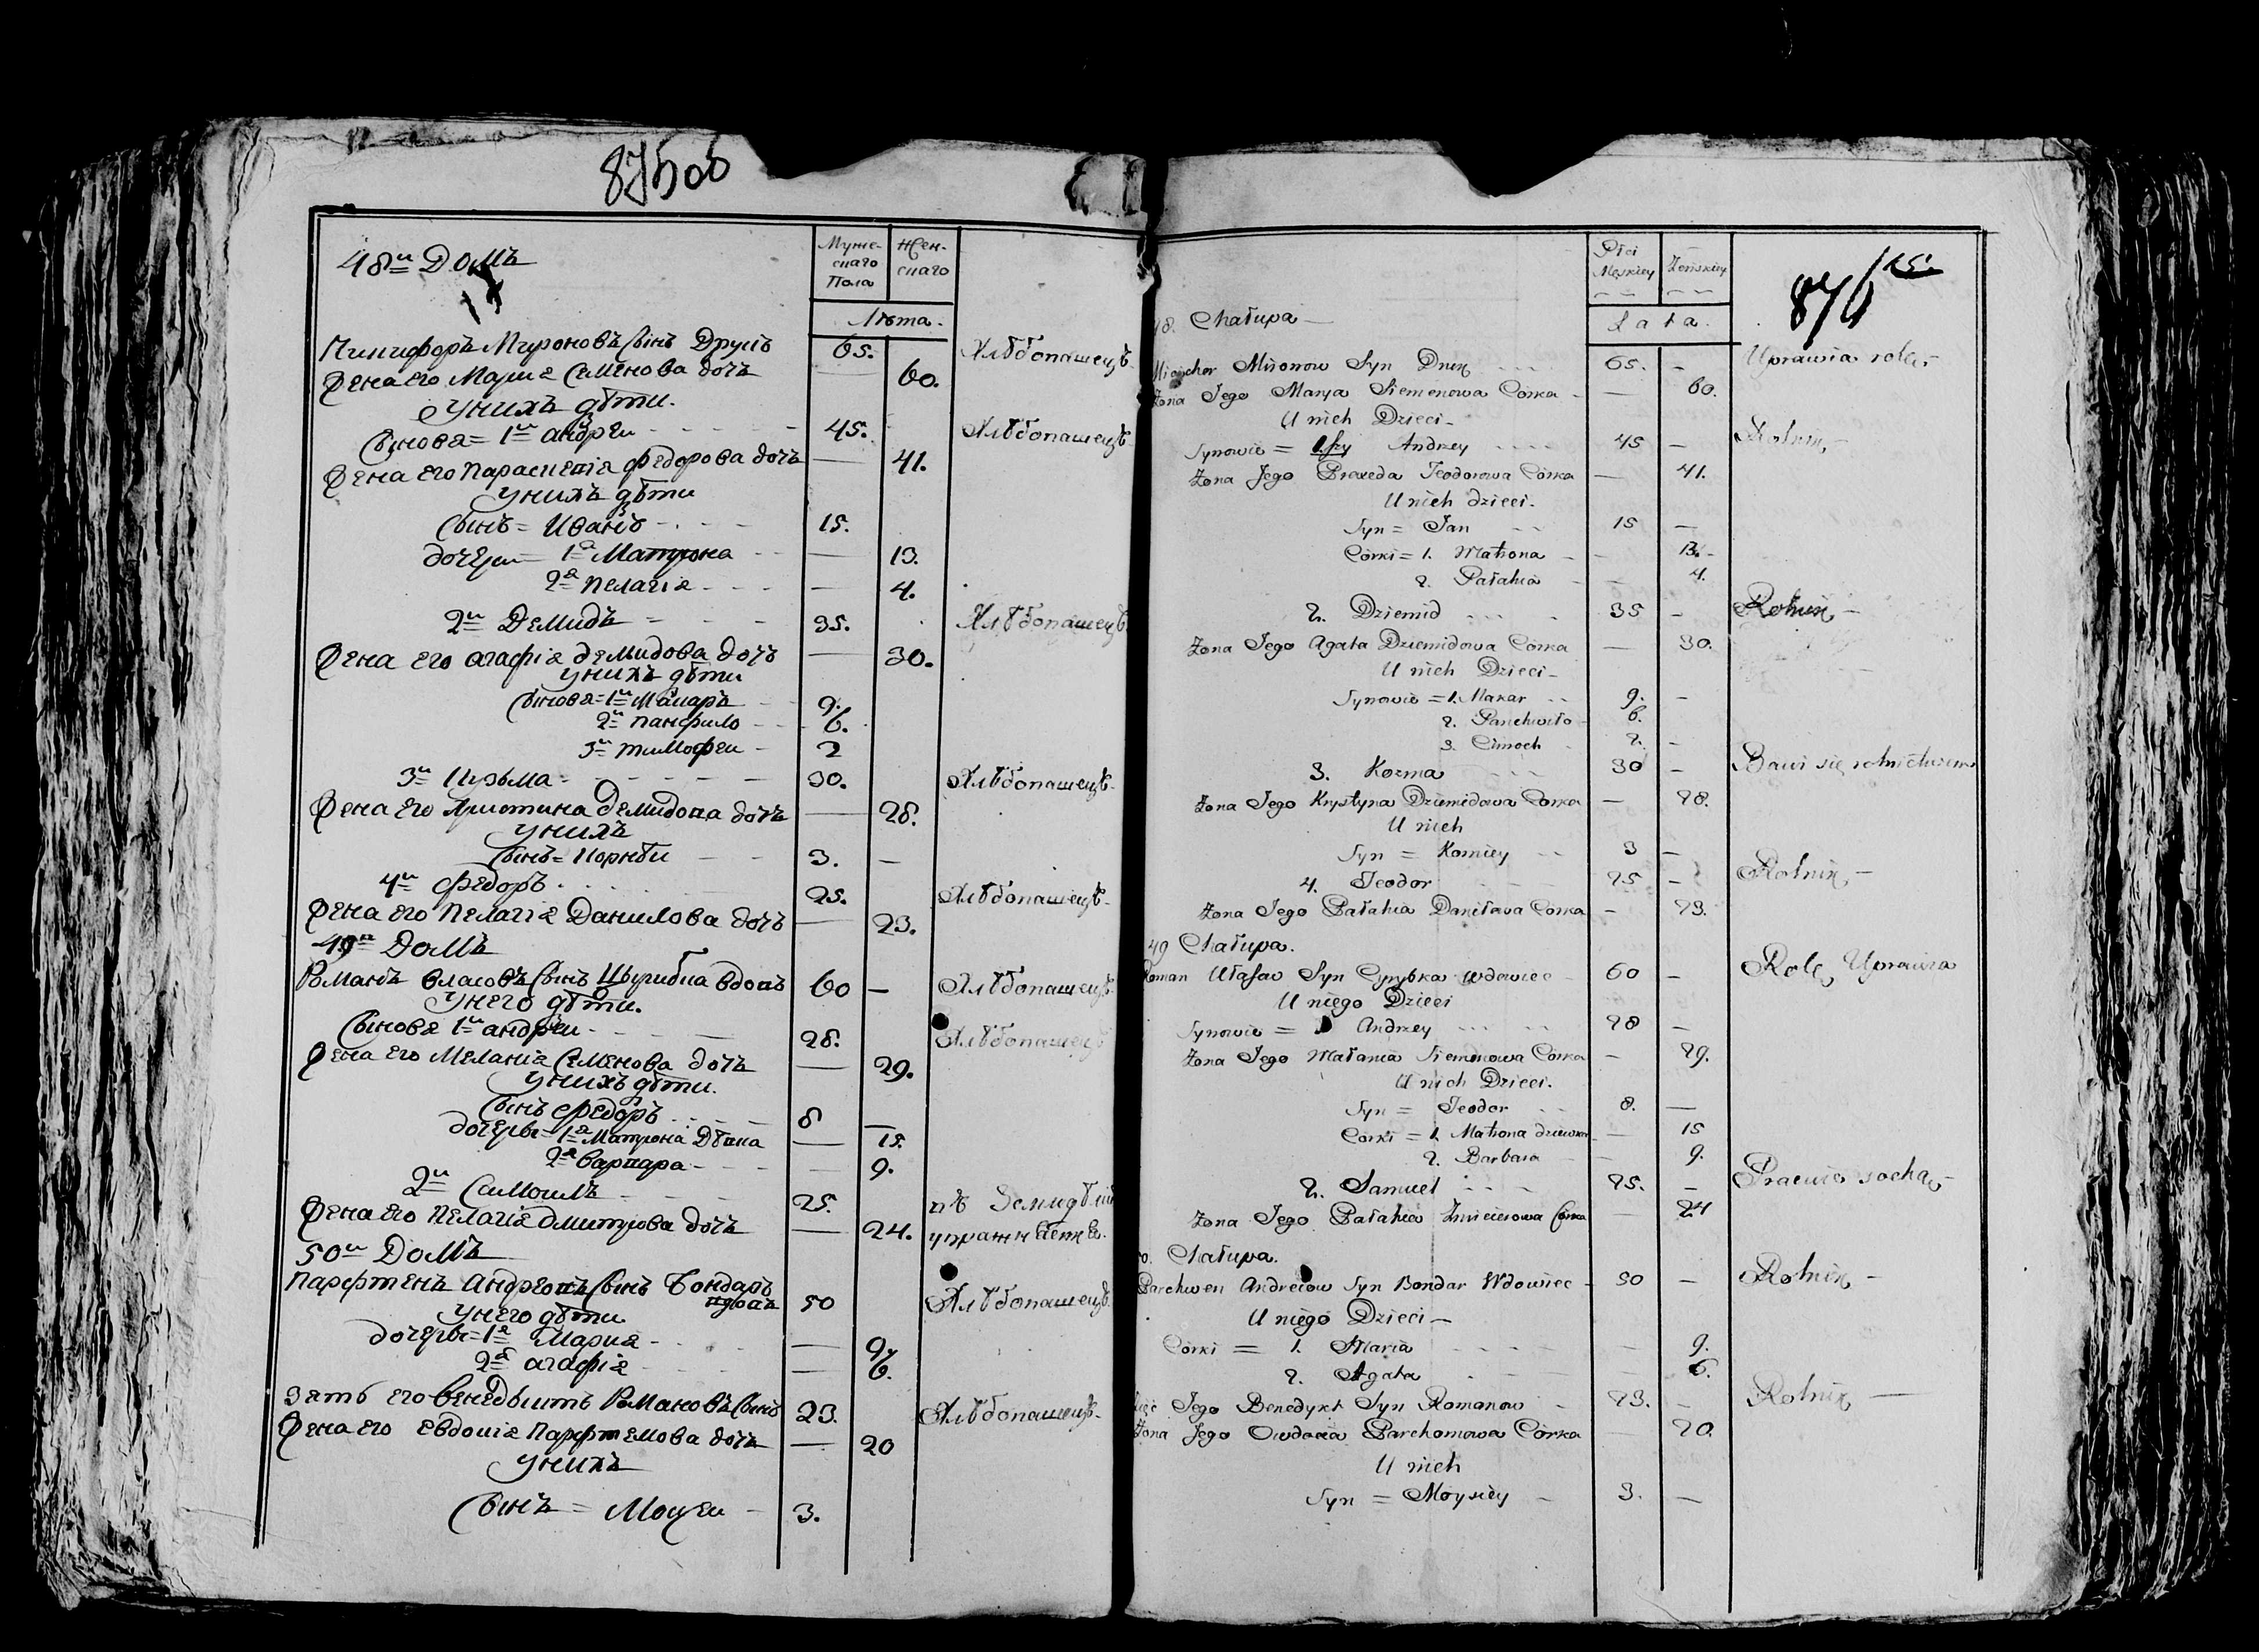 875 об
48й Домъ
Мужескаго Пола
Женскаго
Лѣта.
Никифоръ Мироновъ Сынъ Друкъ 65. Хлѣбопашецъ
Жена его Мария Семенова дочь — 60.
У нихъ дѣти.
Сынове = 1й андреи 45. Хлѣбопашецъ
Жена его Параскевiя Федорова дочь — 41.
У нихъ дѣти
Сынъ = Иванъ 15.
дочери = 1я Матрона — 13.
2я Пелагiя — 4.
2й Демидъ 35. Хлѣбопашецъ
Жена его агафiя демидова дочь — 30.
У нихъ дѣти
Сынове = 1й Макаръ 9.
2й панфило 6.
3й тимофеи 2
3й Кузьма 30. Хлѣбопашецъ
Жена его Христина демидова дочь — 28.
У нихъ
Сынъ = Корнѣи 3. —
4й федоръ 25. Хлѣбопашецъ
Жена его Пелагiя Данилова дочь — 23.
49й Домъ
Романъ власовъ Сынъ Цырибка вдовъ 60 — Хлѣбопашецъ
У него дѣти.
Сынове 1й андреи 28. Хлѣбопашецъ
Жена его Меланiя Семенова дочь — 29.
У нихъ дѣти.
Сынъ федоръ 8 —
дочеры = 1я Матрона Дѣвка — 15.
2я варвара — 9.
2й Самоилъ 25. въ Земледѣлiи
Жена его Пелагiя дмитрова дочь — 24. упражняется.
50й Домъ
Парфтенъ андреовъ Сынъ Бондаръ вдовъ 50 Хлѣбопашецъ
У него дѣти
дочеры = 1я Мария — 9.
2я агафiя — 6.
Зять его венедыктъ Романовъ Сынъ 23. Хлѣбопашецъ
Жена его евдокiя Парфтемова дочь — 20
У нихъ
Сынъ = Моисеи 3.
Płci Męskiey
Żeńskiey
Lata.
876
48. Chałupa —
Michchor Mironow Syn Druk 65. — Uprawia rolę
Żona Jego Marya Siemenowa Córka — 60.
U nich Dzieci
Synowie = 1szy Andrzey 45 — Rolnik
Żona Jego Praxeda Teodorowa Córka — 41.
U nich dzieci.
Syn = Jan 15 —
Córki = 1. Matrona — 13.
2. Pałahia — 4.
2. Dziemid 35 — Rolnik —
Żona Jego Agata Dziemidowa Córka — 30.
U nich Dzieci
Synowie = 1. Makar 9. —
2. Panchwiło 6.
3. Cimoch 2. —
3. Kozma 30 — Bawi się rolnictwem
Żona Jego Krystyna Dziemidowa Córka — 28.
U nich
Syn = Korniey 3 —
4. Teodor 25 — Rolnik —
Żona Jego Pałahia Daniłowa Córka — 23.
49 Chałupa.
Roman Ułasow Syn Cyrybka wdowiec 60 — Rolę Uprawia
U niego Dzieci
Synowie = Andrzey 28 —
Żona Jego Małania Siemenowa Córka — 29.
U nich Dzieci.
Syn = Teodor 8. —
Córki = 1. Matrona dziewka — 15
2. Barbara — 9.
2. Samuel 25. — Pracuie sochą
Żona Jego Pałahia Zmicierowa Córka — 24
50. Chałupa.
Parchwen Andreiow Syn Bondar Wdowiec 50 — Rolnik —
U niego Dzieci —
Córki = 1. Maria — 9.
2. Agata — 6.
Zięć Jego Benedykt Syn Romanow 23. — Rolnik —
Żona Jego Owdocia Parchomowa Córka — 20.
U nich
Syn = Moysiey 3. —